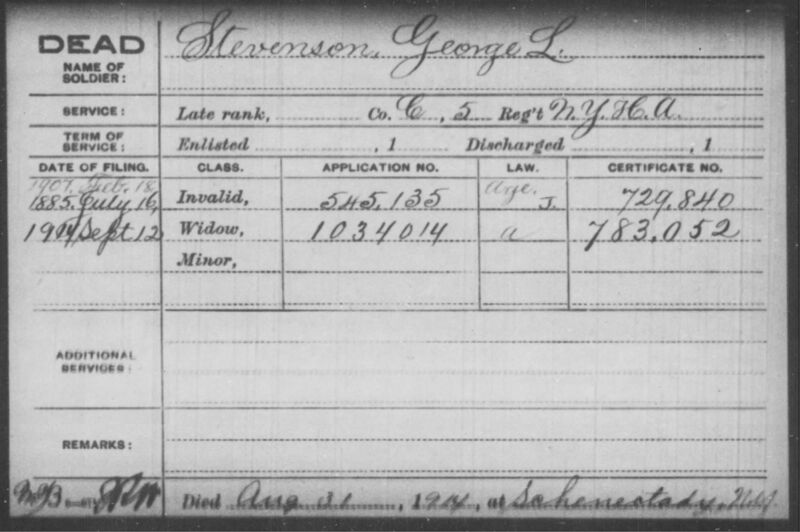 DEAD
NAME OF SOLDIER: Stevenson, George L.
SERVICE: Late rank, Co. C, 5 Reg't N.Y.H.A.
TERM OF SERVICE: Enlisted , 1 Discharged , 1
DATE OF FILING. CLASS. APPLICATION NO. LAW. CERTIFICATE NO.
1907. Feb. 18. Age.
1885. July 16, Invalid, 545,135 J. 729,840
1914 Sept 12 Widow, 1034014 a 783,052
Minor,
ADDITIONAL SERVICES:
REMARKS:
Died Aug 31, 1914, at Schenectady, N.Y.